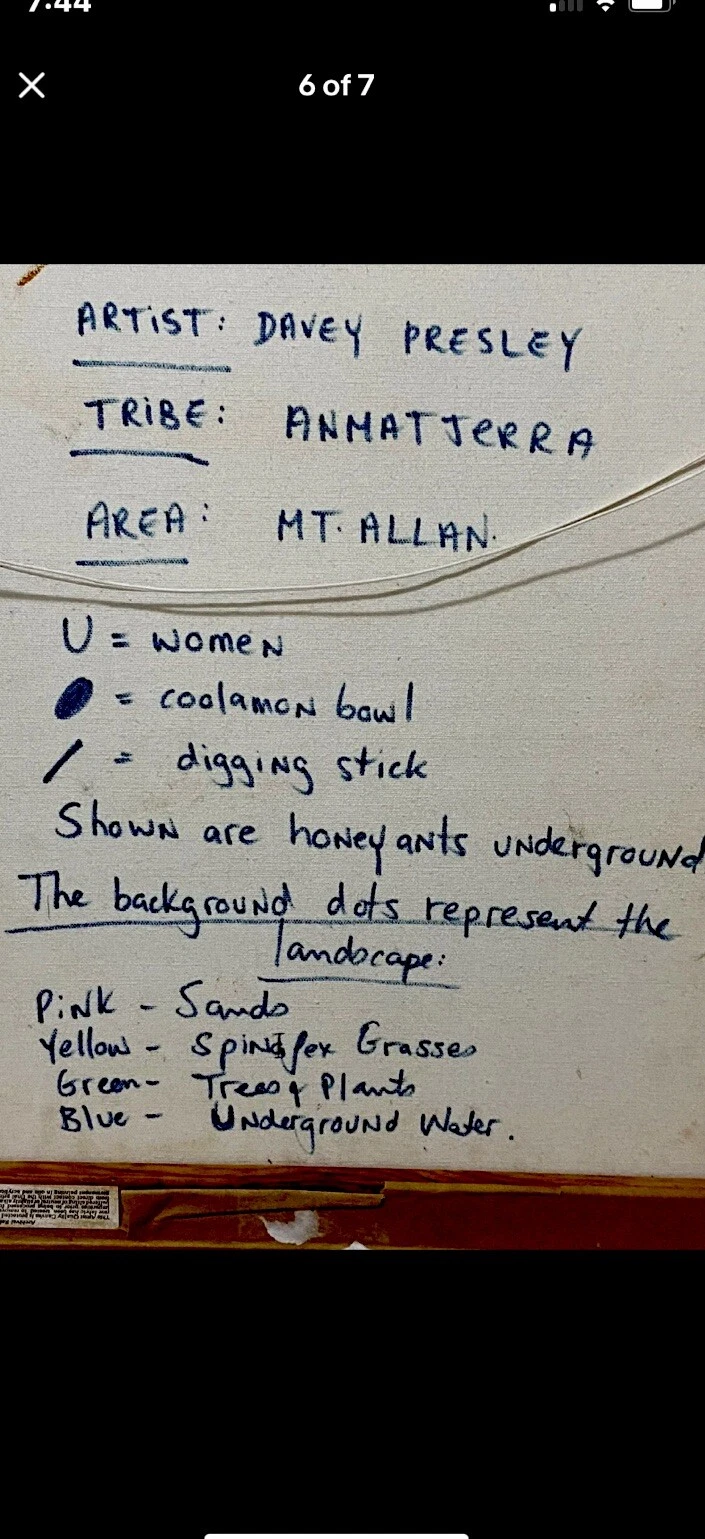 7:44
6 of 7
ARTIST: DAVEY PRESLEY
TRIBE: ANMATJERRA
AREA: MT. ALLAN.
U = women
= coolamon bowl
/ = digging stick
Shown are honey ants underground
The background dots represent the
landscape:
Pink - Sands
Yellow - Spinifex Grasses
Green - Trees & Plants
Blue - Underground Water.